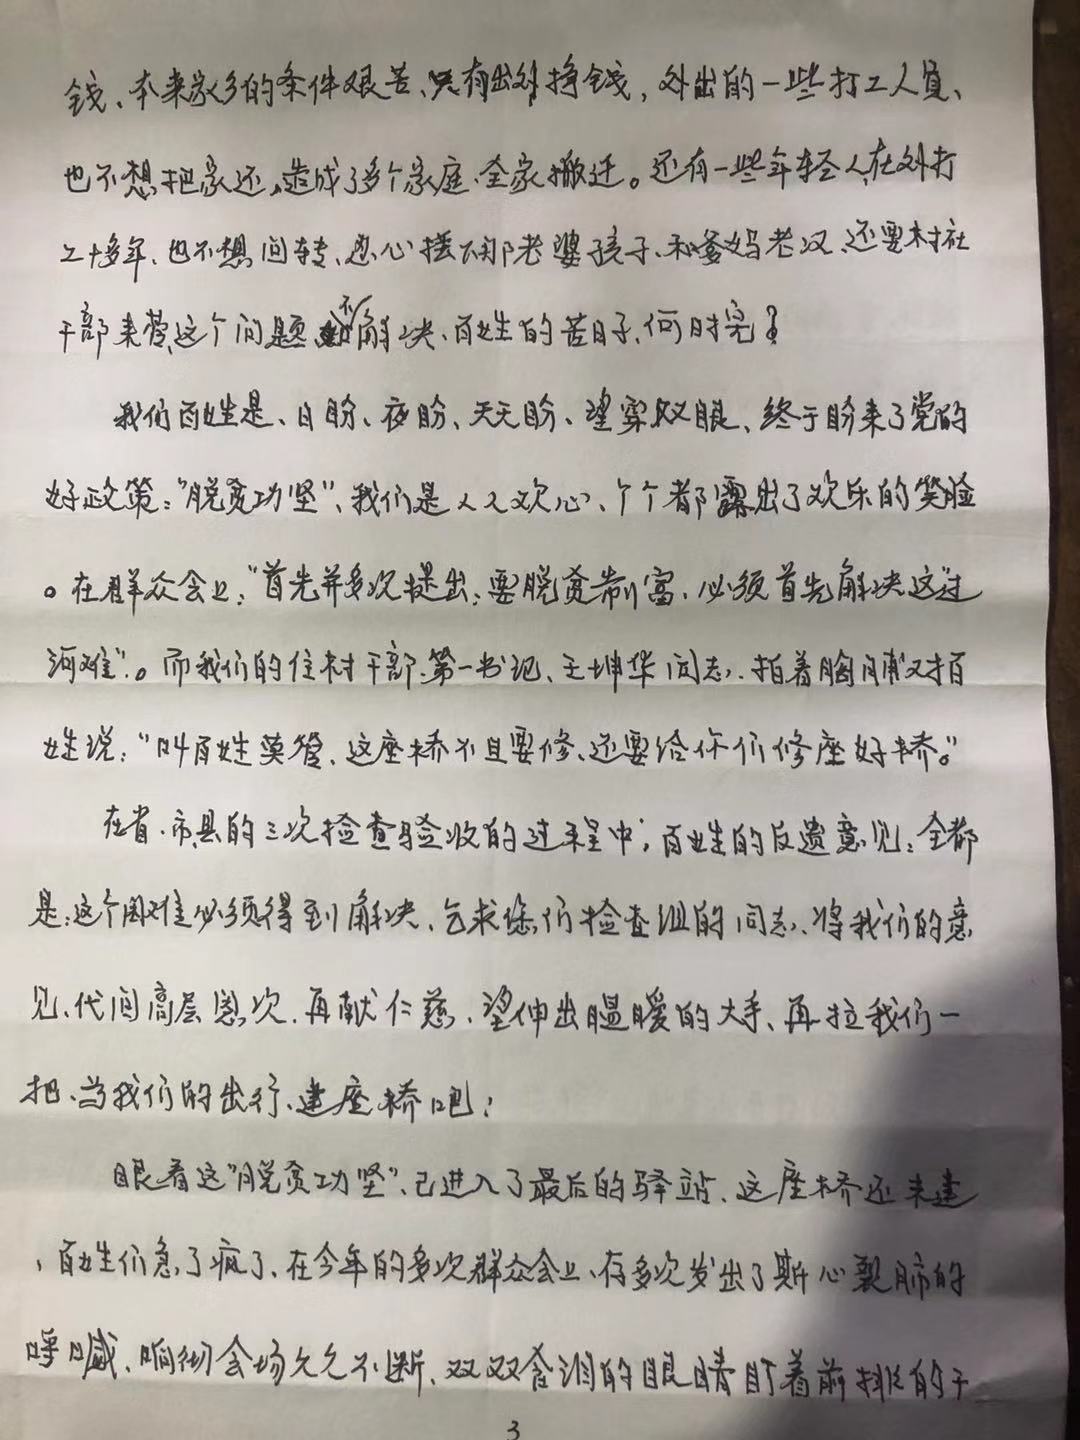 钱、本来家乡的条件艰苦、只有出外挣钱，外出的一些打工人员、
也不想把家还，造成了多个家庭、全家搬迁。还有一些年轻人、在外打
工十多年、也不想回转、忍心摆下那老婆孩子、和爹妈老汉、还要村社
干部来管、这个问题不解决、百姓的苦日子、何时完？
我们百姓是、日盼、夜盼、天天盼、望穿双眼、终于盼来了党的
好政策："脱贫功坚"、我们是人人欢心、个个都露出了欢乐的笑脸
。在群众会上："首先并多次提出：要脱贫制富、必须首先解决这"过
河难"。而我们的住村干部、第一书记、王坤华同志、拍着胸脯又对百
姓说："叫百姓莫管、这座桥不且要修、还要给你们修座好桥。"
在省、市、县的三次检查验收的过程中，百姓的反遗意见：全都
是：这个困难必须得到解决、乞求您们检查组的同志、将我们的意
见、代问高层恩次、再献仁慈、望伸出温暖的大手、再拉我们一
把、为我们的出行、建座桥吧！
眼看这"脱贫功坚"、已进入了最后的驿站、这座桥还未建
、百姓们急了疯了、在今年的多次群众会上、有多次发出了斯心裂肺的
呼喊、响彻会场久久不断、双双含泪的眼睛盯着前排的干
3